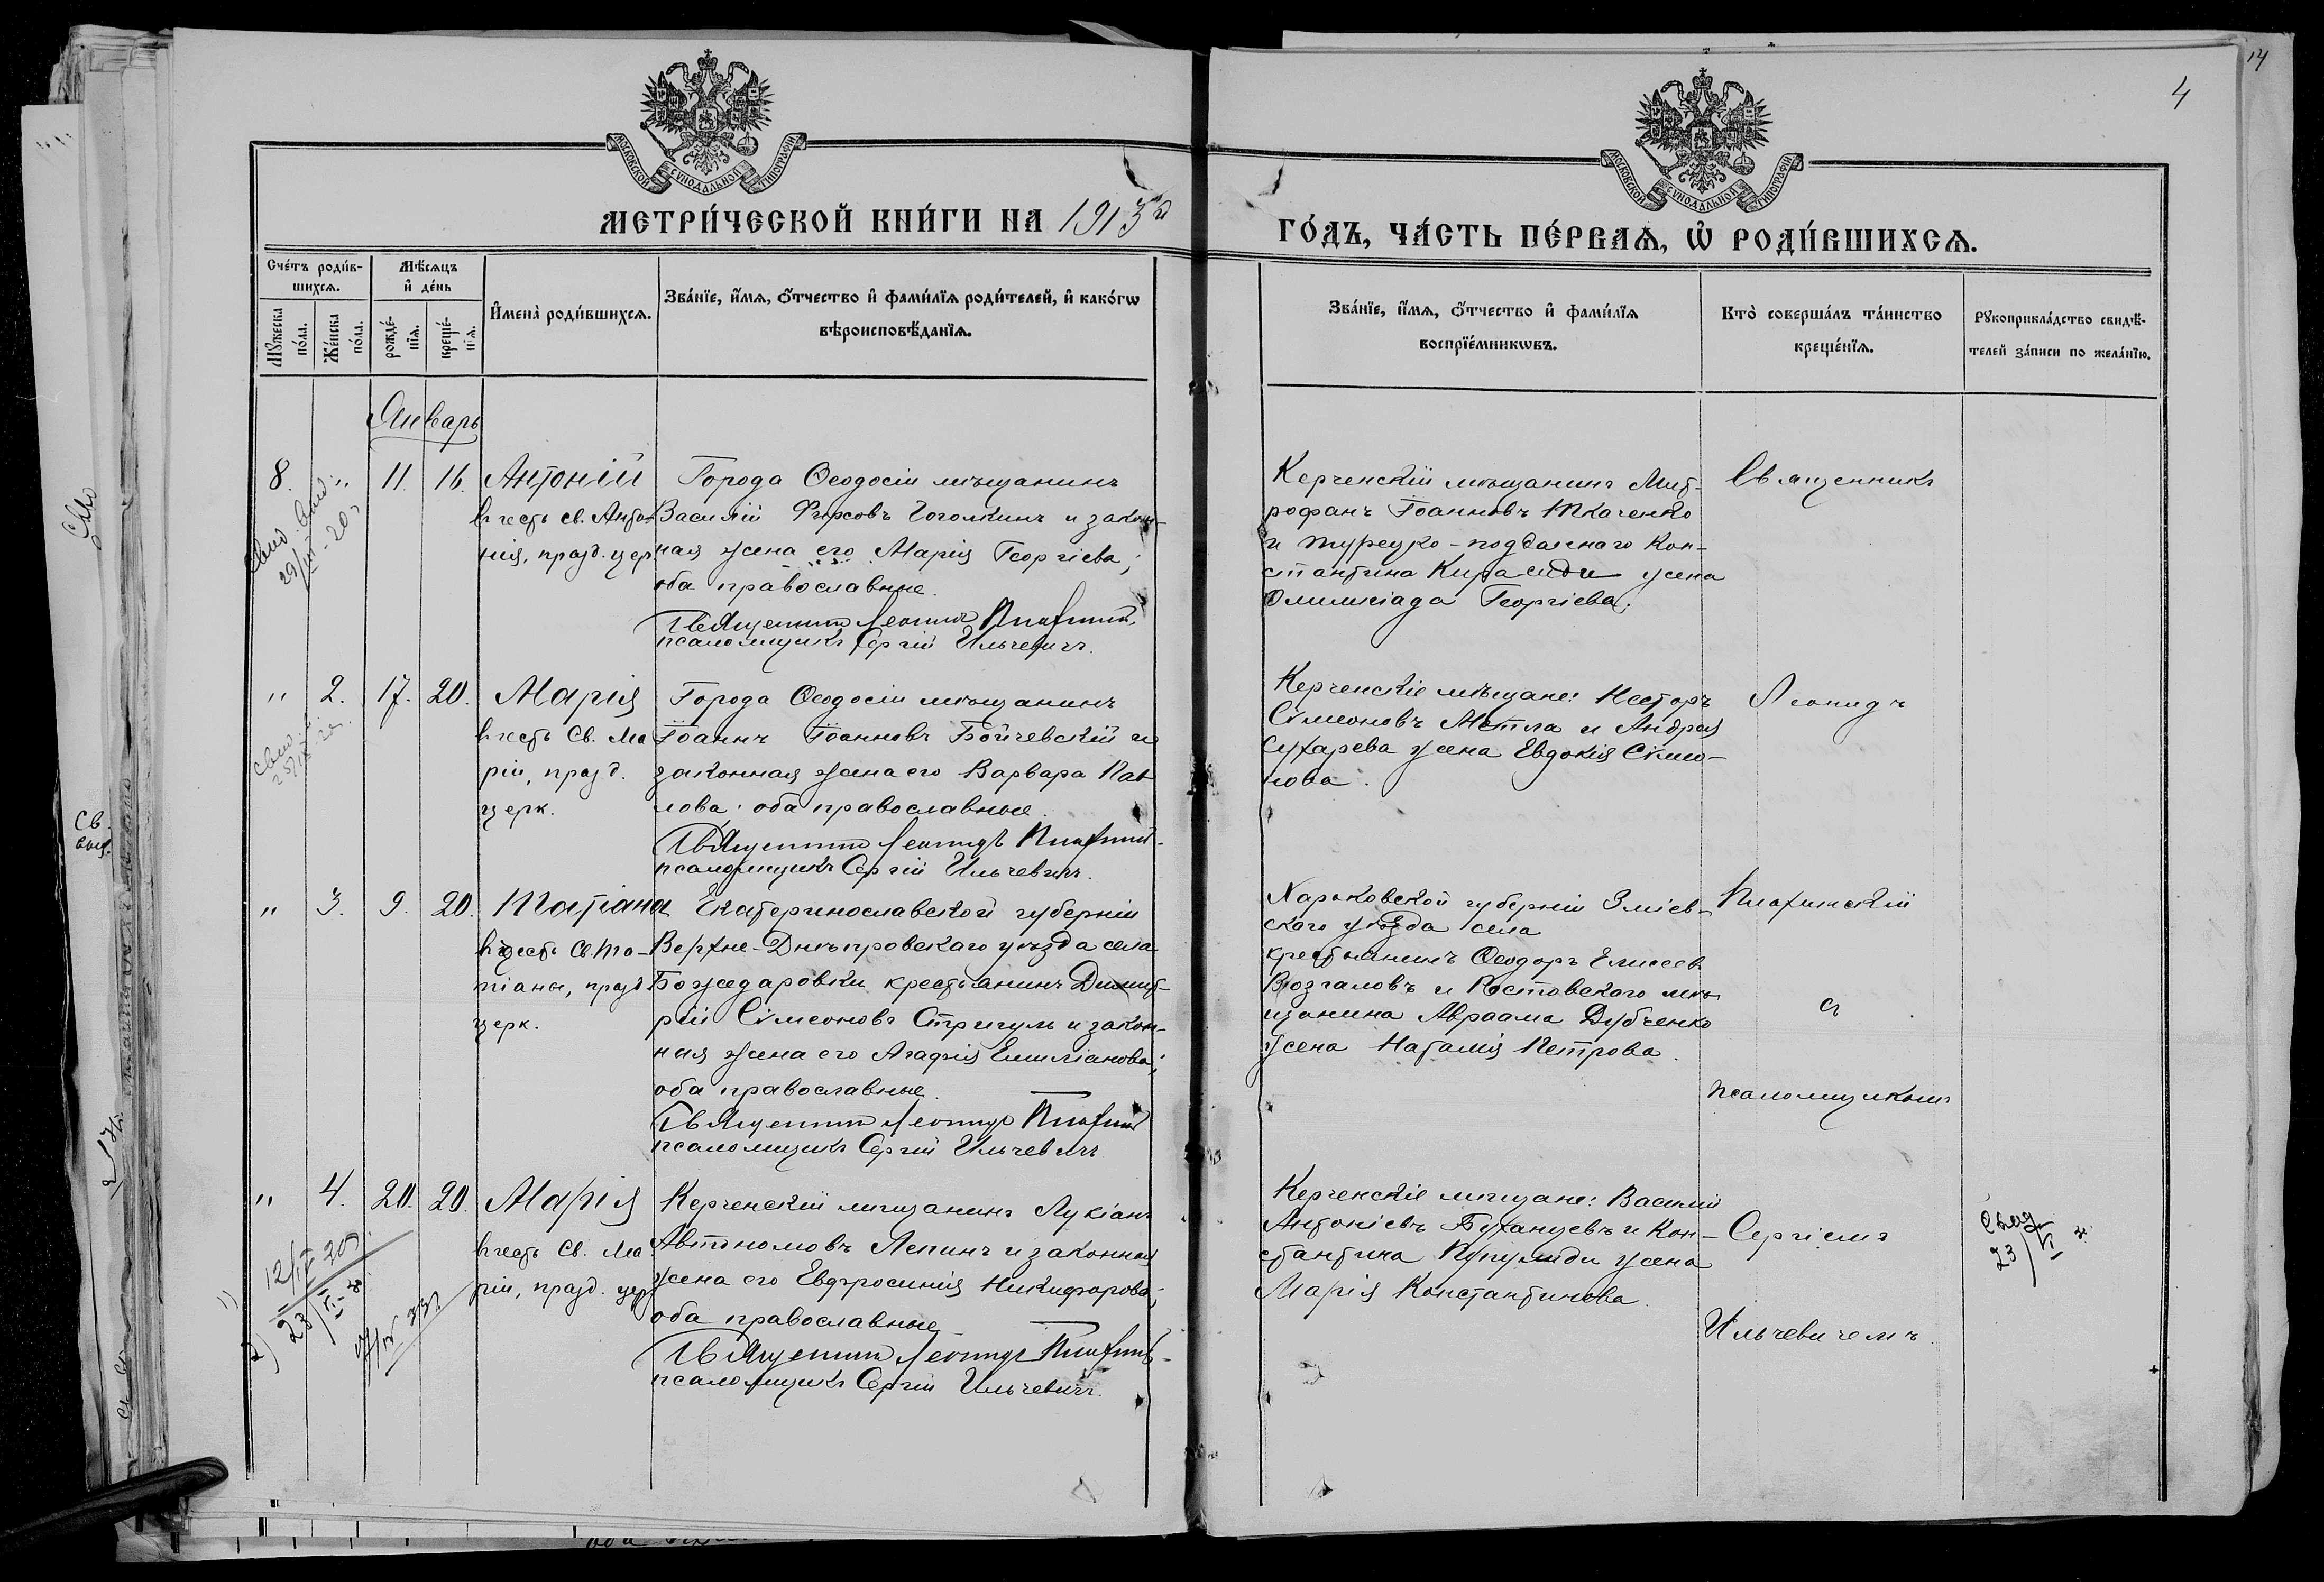 14
4
МОСКОВСКОЙ СѴНОДАЛЬНОЙ ТИПОГРАФІИ
МОСКОВСКОЙ СѴНОДАЛЬНОЙ ТИПОГРАФІИ
МЕТРИ́ЧЕСКОЙ КНИ́ГИ НА 1913й
ГО́ДЪ, ЧА́СТЬ ПЕ́РВАѦ, Ѡ҆ РОДИ́ВШИХСѦ.
Сче́тъ роди́в-
шихсѧ.
Мѣ́сѧцъ
и҆ де́нь
Мꙋ́жеска по́ла.
Же́нска по́ла.
рожде́-
нїѧ.
креще́-
нїѧ.
И҆мена̀ роди́вшихсѧ.
Зва́нїе, и҆́мѧ, ѻ҆́тчество и҆ фами́лїѧ роди́телей, и҆ како́гѡ
вѣроисповѣ́данїѧ.
Зва́нїе, и҆́мѧ, ѻ҆́тчество и҆ фами́лїѧ
воспрїе́мникѡвъ.
Кто̀ соверша́лъ та́инство
креще́нїѧ.
Рꙋкоприкла́дство свидѣ́-
телей за́писи по жела́нїю.
Январь
8. " 11. 16. Антоній
въ честь св. Анто-
нія, празд. цер
Города Ѳеодосіи мѣщанинъ
Василій Фирсовъ Гоголкинъ и закон-
ная жена его Марія Георгіева;
оба православные.
Священникъ Леонидъ
псаломщикъ Сергій Ильчевичъ.
Керченскій мѣщанинъ Мит-
рофанъ Іоанновъ Ткаченко
и турецко-подданнаго Кон-
стантина жена
Олимпіада Георгіева.
Священникъ
" 2. 17. 20. Марія
въ честь Св. Ма
ріи, празд.
церк.
Города Ѳеодосіи мѣщанинъ
Іоаннъ Іоанновъ Бойчевскій и
законная жена его Варвара Пав
лова; оба православные.
Священникъ Леонидъ
псаломщикъ Сергій Ильчевичъ.
Керченскіе мѣщане: Несторъ
Сімеоновъ Метла и Андрея
Сухарева жена Евдокія Сімо-
нова.
Леонидъ
" 3. 9. 20. Татіана
въ честь Св. Та-
тіаны, празд
церк.
Екатеринославской губерніи
Верхне-Днѣпровскаго уѣзда села
Божедаровки крестьянинъ Димит-
рій Сімеоновъ Стригуль и закон-
ная жена его Агафія Емиліанова;
оба православные.
Священникъ Леонидъ
псаломщикъ Сергій Ильчевичъ
Харьковской губерніи Зміев-
скаго уѣзда села
крестьянинъ Ѳеодоръ Елисеев
и Ростовскаго мѣ-
щанина Авраама Дубченко
жена Наталія Петрова.
съ
псаломщикомъ
" 4. 20. 20. Марія
въ честь Св. Ма
ріи, празд. цер
Керченскій мѣщанинъ Лукіанъ
Автономовъ Лепинъ и законная
жена его Евфросинія Никифорова;
оба православные
Священникъ Леонидъ
псаломщикъ Сергій Ильчевичъ.
Керченскіе мѣщане: Василій
Антоніевъ и Кон-
стантина жена
Марія Константинова.
Сергіемъ
Ильчевичемъ